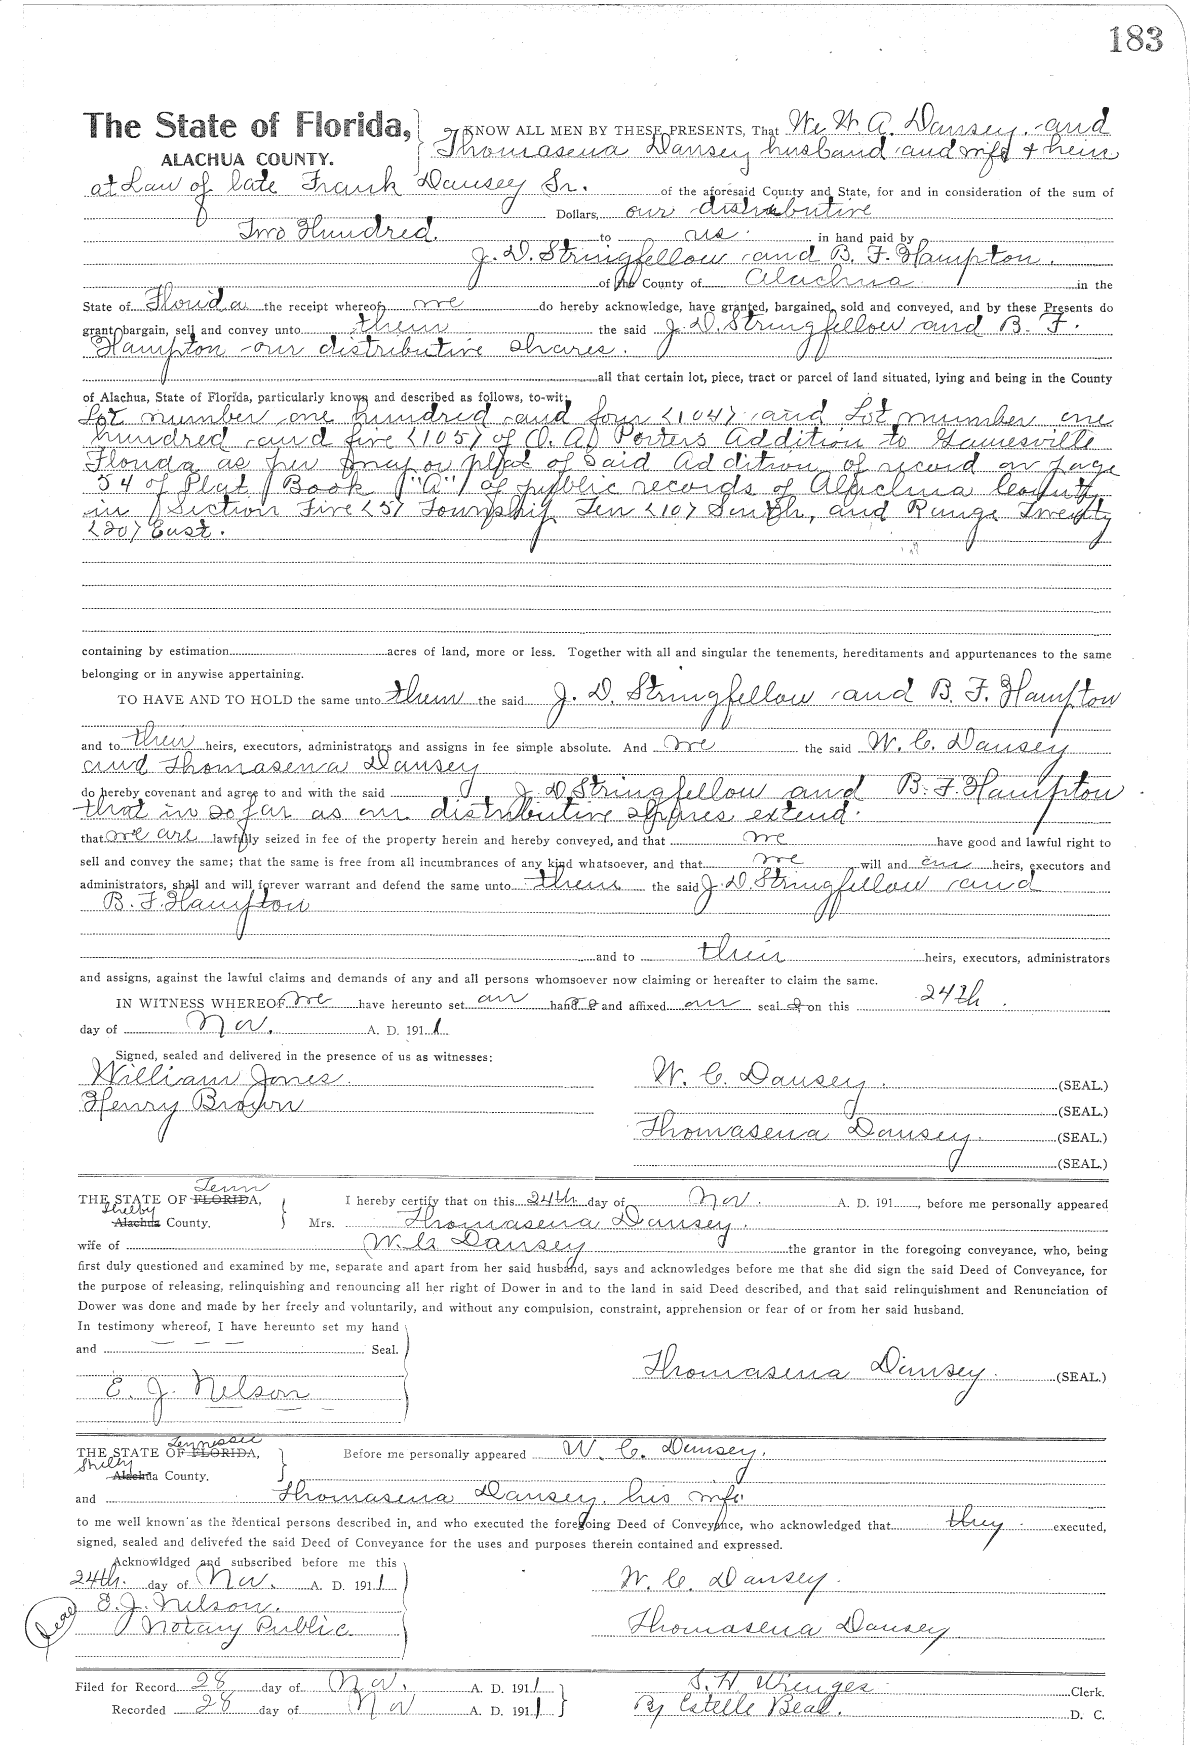 183
The State of Florida,
ALACHUA COUNTY.
KNOW ALL MEN BY THESE PRESENTS, That We W. A. Dansey and
Thomasena Dansey husband and wife & heirs
at Law of late Frank Dansey Sr. of the aforesaid County and State, for and in consideration of the sum of
Dollars, our distributive
Two Hundred. to us in hand paid by
J. D. Stringfellow and B. F. Hampton.
of the County of Alachua in the
State of Florida the receipt whereof we do hereby acknowledge, have granted, bargained, sold and conveyed, and by these Presents do
grant, bargain, sell and convey unto them the said J. D. Stringfellow and B. F.
Hampton our distributive shares.
all that certain lot, piece, tract or parcel of land situated, lying and being in the County
of Alachua, State of Florida, particularly known and described as follows, to-wit:
Lot number one hundred and four <104> and Lot number one
hundred and five <105> of O. A. Porters Addition to Gainesville
Florida as per map or plat of said Addition of record on page
54 of Plat Book "A" of public records of Alachua County
in Section Five <5> Township Ten <10> South, and Range Twenty
<20> East.
containing by estimation acres of land, more or less. Together with all and singular the tenements, hereditaments and appurtenances to the same
belonging or in anywise appertaining.
TO HAVE AND TO HOLD the same unto them the said J. D. Stringfellow and B. F. Hampton
and to their heirs, executors, administrators and assigns in fee simple absolute. And we the said W. C. Dansey
and Thomasena Dansey
do hereby covenant and agree to and with the said J. D. Stringfellow and B. F. Hampton
that in so far as our distributive shares extend.
that we are lawfully seized in fee of the property herein and hereby conveyed, and that we have good and lawful right to
sell and convey the same; that the same is free from all incumbrances of any kind whatsoever, and that we will and our heirs, executors and
administrators, shall and will forever warrant and defend the same unto them the said J. D. Stringfellow and
B. F. Hampton
and to their heirs, executors, administrators
and assigns, against the lawful claims and demands of any and all persons whomsoever now claiming or hereafter to claim the same.
IN WITNESS WHEREOF we have hereunto set our hands and affixed our seals on this 24th.
day of Nov. A. D. 1911
Signed, sealed and delivered in the presence of us as witnesses:
William Jones.
Henry Brown
W. C. Dansey. (SEAL.)
(SEAL.)
Thomasena Dansey. (SEAL.)
(SEAL.)
Tenn
THE STATE OF FLORIDA,
Shelby
Alachua County.
I hereby certify that on this 24th day of Nov. A. D. 191 , before me personally appeared
Mrs. Thomasena Dansey.
wife of W. C. Dansey the grantor in the foregoing conveyance, who, being
first duly questioned and examined by me, separate and apart from her said husband, says and acknowledges before me that she did sign the said Deed of Conveyance, for
the purpose of releasing, relinquishing and renouncing all her right of Dower in and to the land in said Deed described, and that said relinquishment and Renunciation of
Dower was done and made by her freely and voluntarily, and without any compulsion, constraint, apprehension or fear of or from her said husband.
In testimony whereof, I have hereunto set my hand
and Seal.
E. J. Nelson
Thomasena Dansey. (SEAL.)
Tennessee
THE STATE OF FLORIDA,
Shelby
Alachua County.
Before me personally appeared W. C. Dansey.
and Thomasena Dansey, his wife
to me well known as the identical persons described in, and who executed the foregoing Deed of Conveyance, who acknowledged that they executed,
signed, sealed and delivered the said Deed of Conveyance for the uses and purposes therein contained and expressed.
Acknowldged and subscribed before me this
24th. day of Nov. A. D. 1911
E. J. Nelson.
Notary Public
Seal
W. C. Dansey.
Thomasena Dansey
Filed for Record 28 day of Nov. A. D. 1911
Recorded 28 day of Nov A. D. 1911
S. H. Wienges Clerk.
By Estelle Beal. D. C.